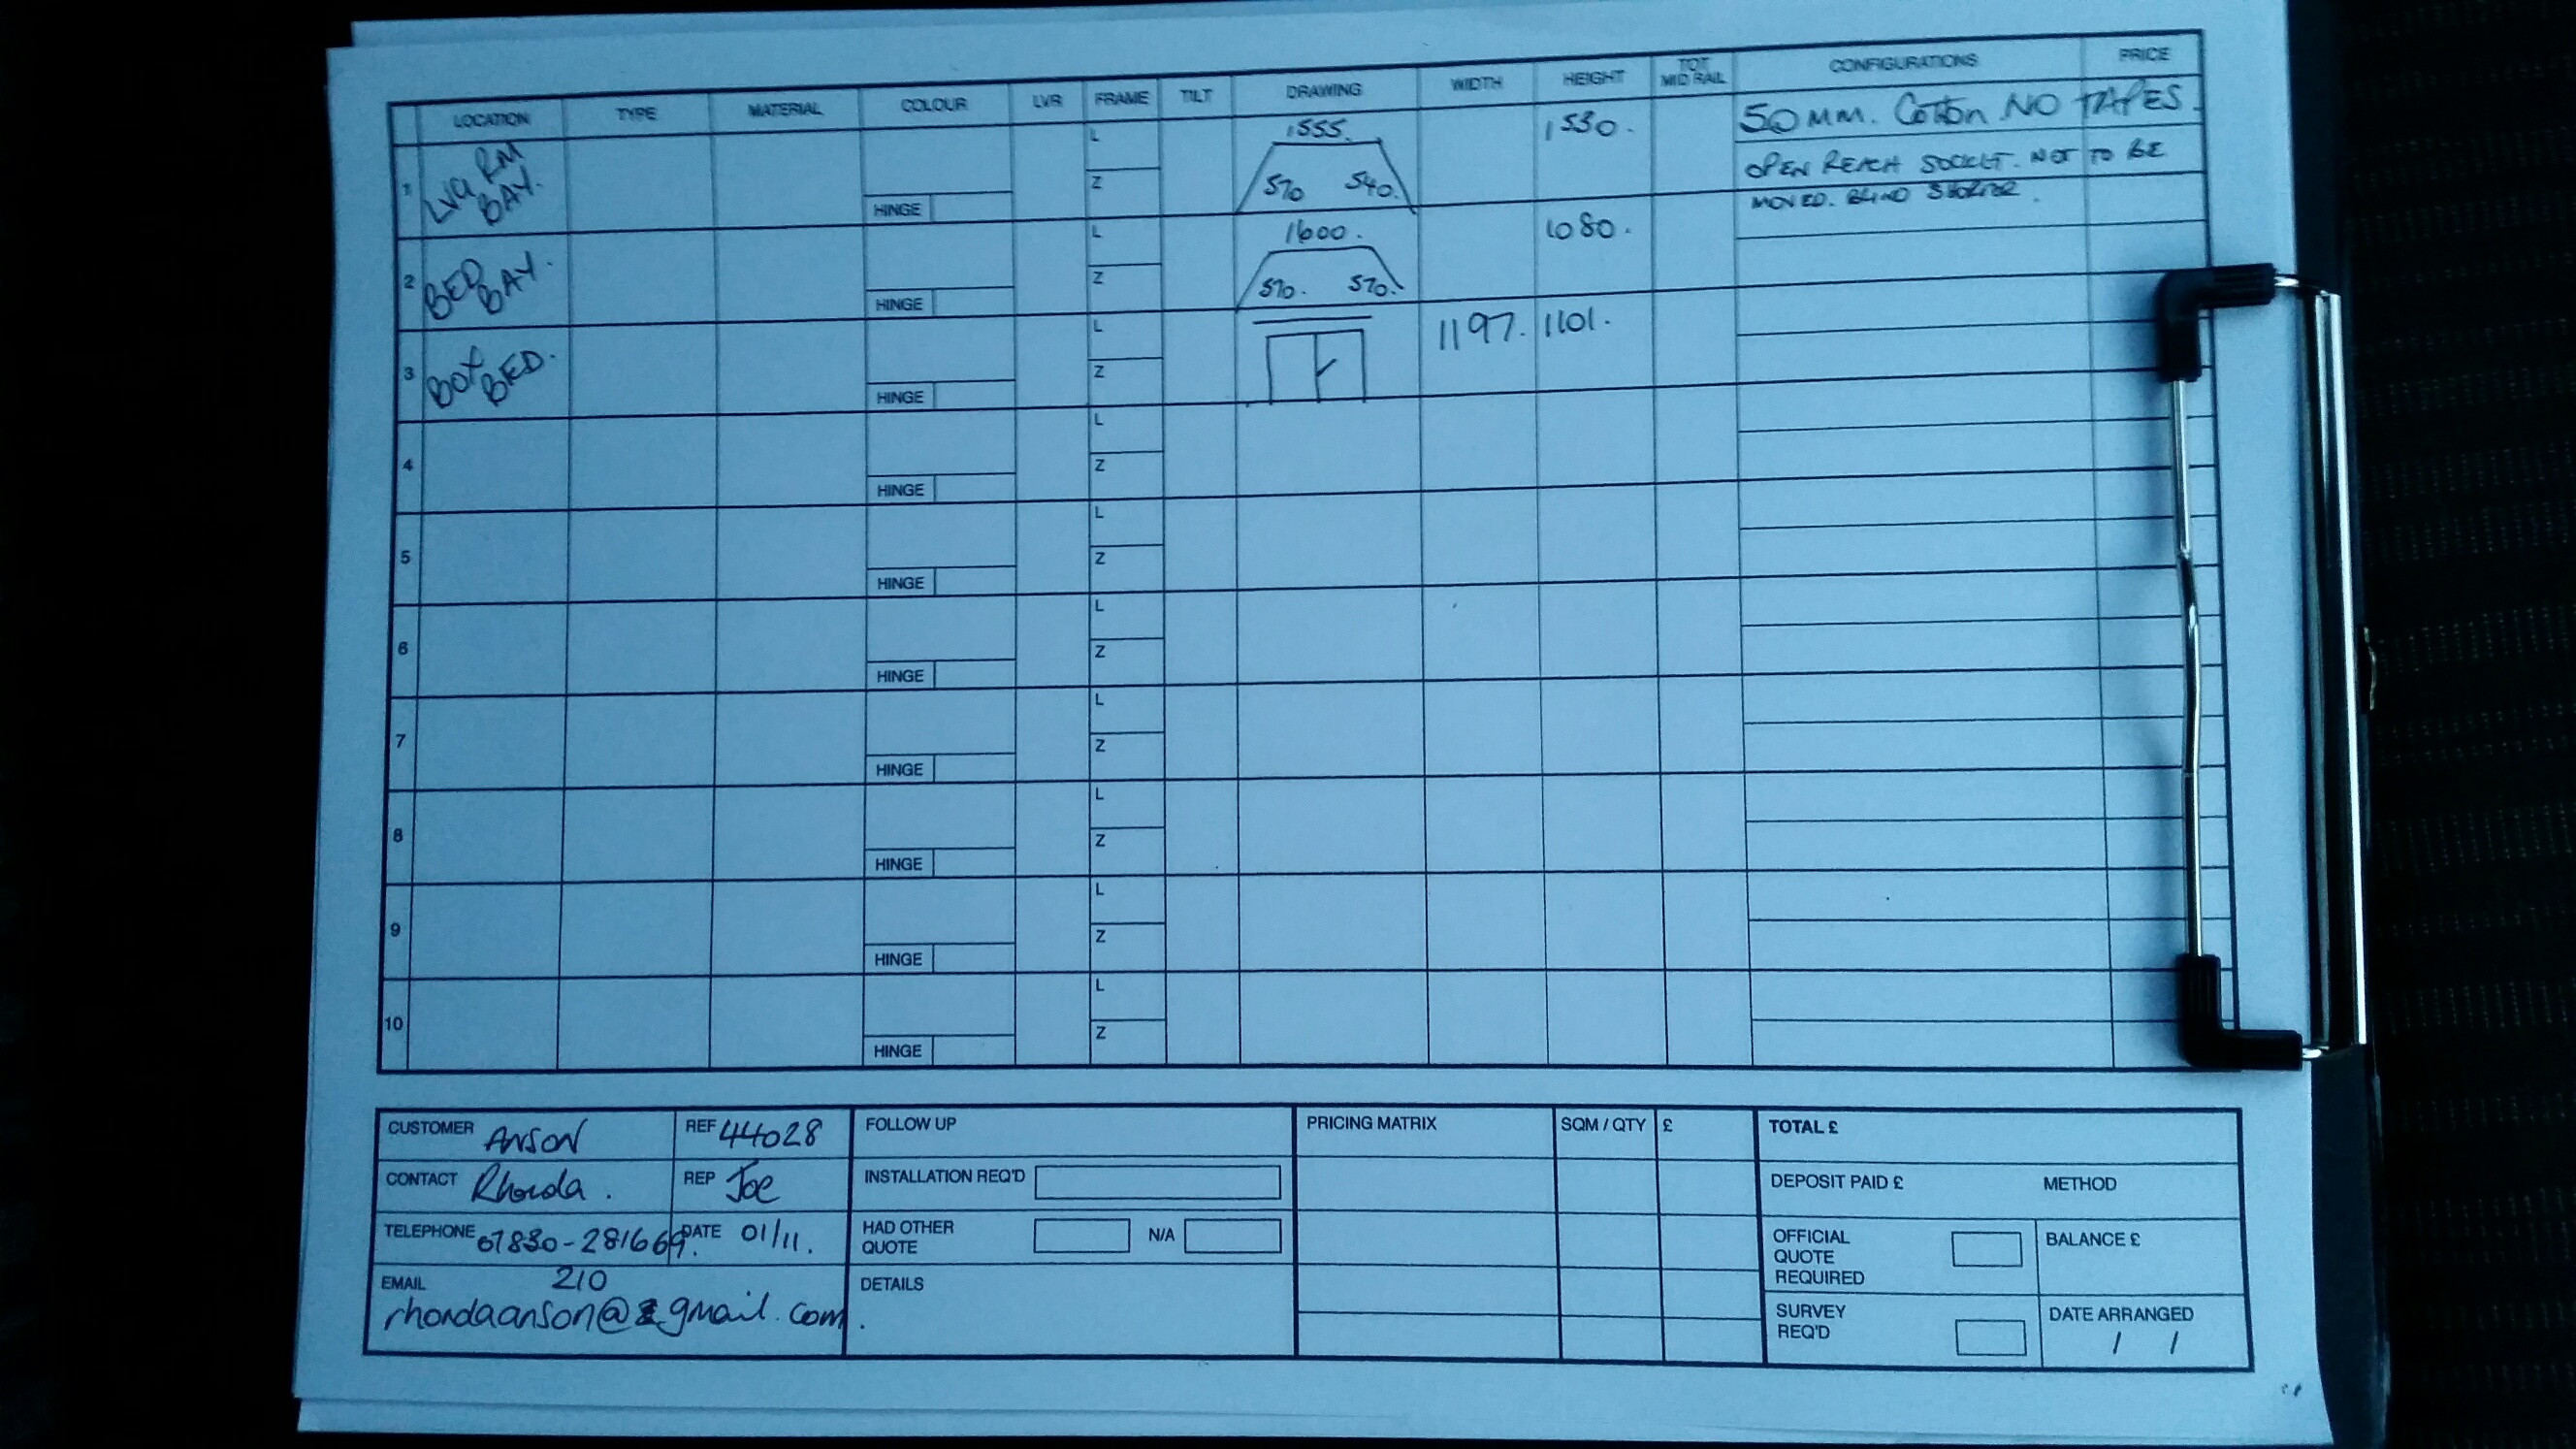 LOCATION TYPE MATERIAL COLOUR LVR FRAME TILT DRAWING WIDTH HEIGHT TOT MID RAIL CONFIGURATIONS PRICE
1 LVG RM BAY. HINGE L Z 1555. 570 540. 1530. 50MM. Cotton NO TAPES.
OPEN REACH SOCKET. NOT TO BE
MOVED. BLIND SHORTER.
2 BED BAY. HINGE L Z 1600. 570. 570. 1080.
3 BOX BED. HINGE L Z 1197. 1101.
4 HINGE L Z
5 HINGE L Z
6 HINGE L Z
7 HINGE L Z
8 HINGE L Z
9 HINGE L Z
10 HINGE L Z
CUSTOMER ANSON REF 44028
CONTACT Rhonda. REP Joe
TELEPHONE 07830-281669. DATE 01/11.
EMAIL 210
rhondaanson@gmail.com.
FOLLOW UP
INSTALLATION REQ'D
HAD OTHER QUOTE N/A
DETAILS
PRICING MATRIX SQM / QTY £
TOTAL £
DEPOSIT PAID £ METHOD
OFFICIAL QUOTE REQUIRED BALANCE £
SURVEY REQ'D DATE ARRANGED
/ /